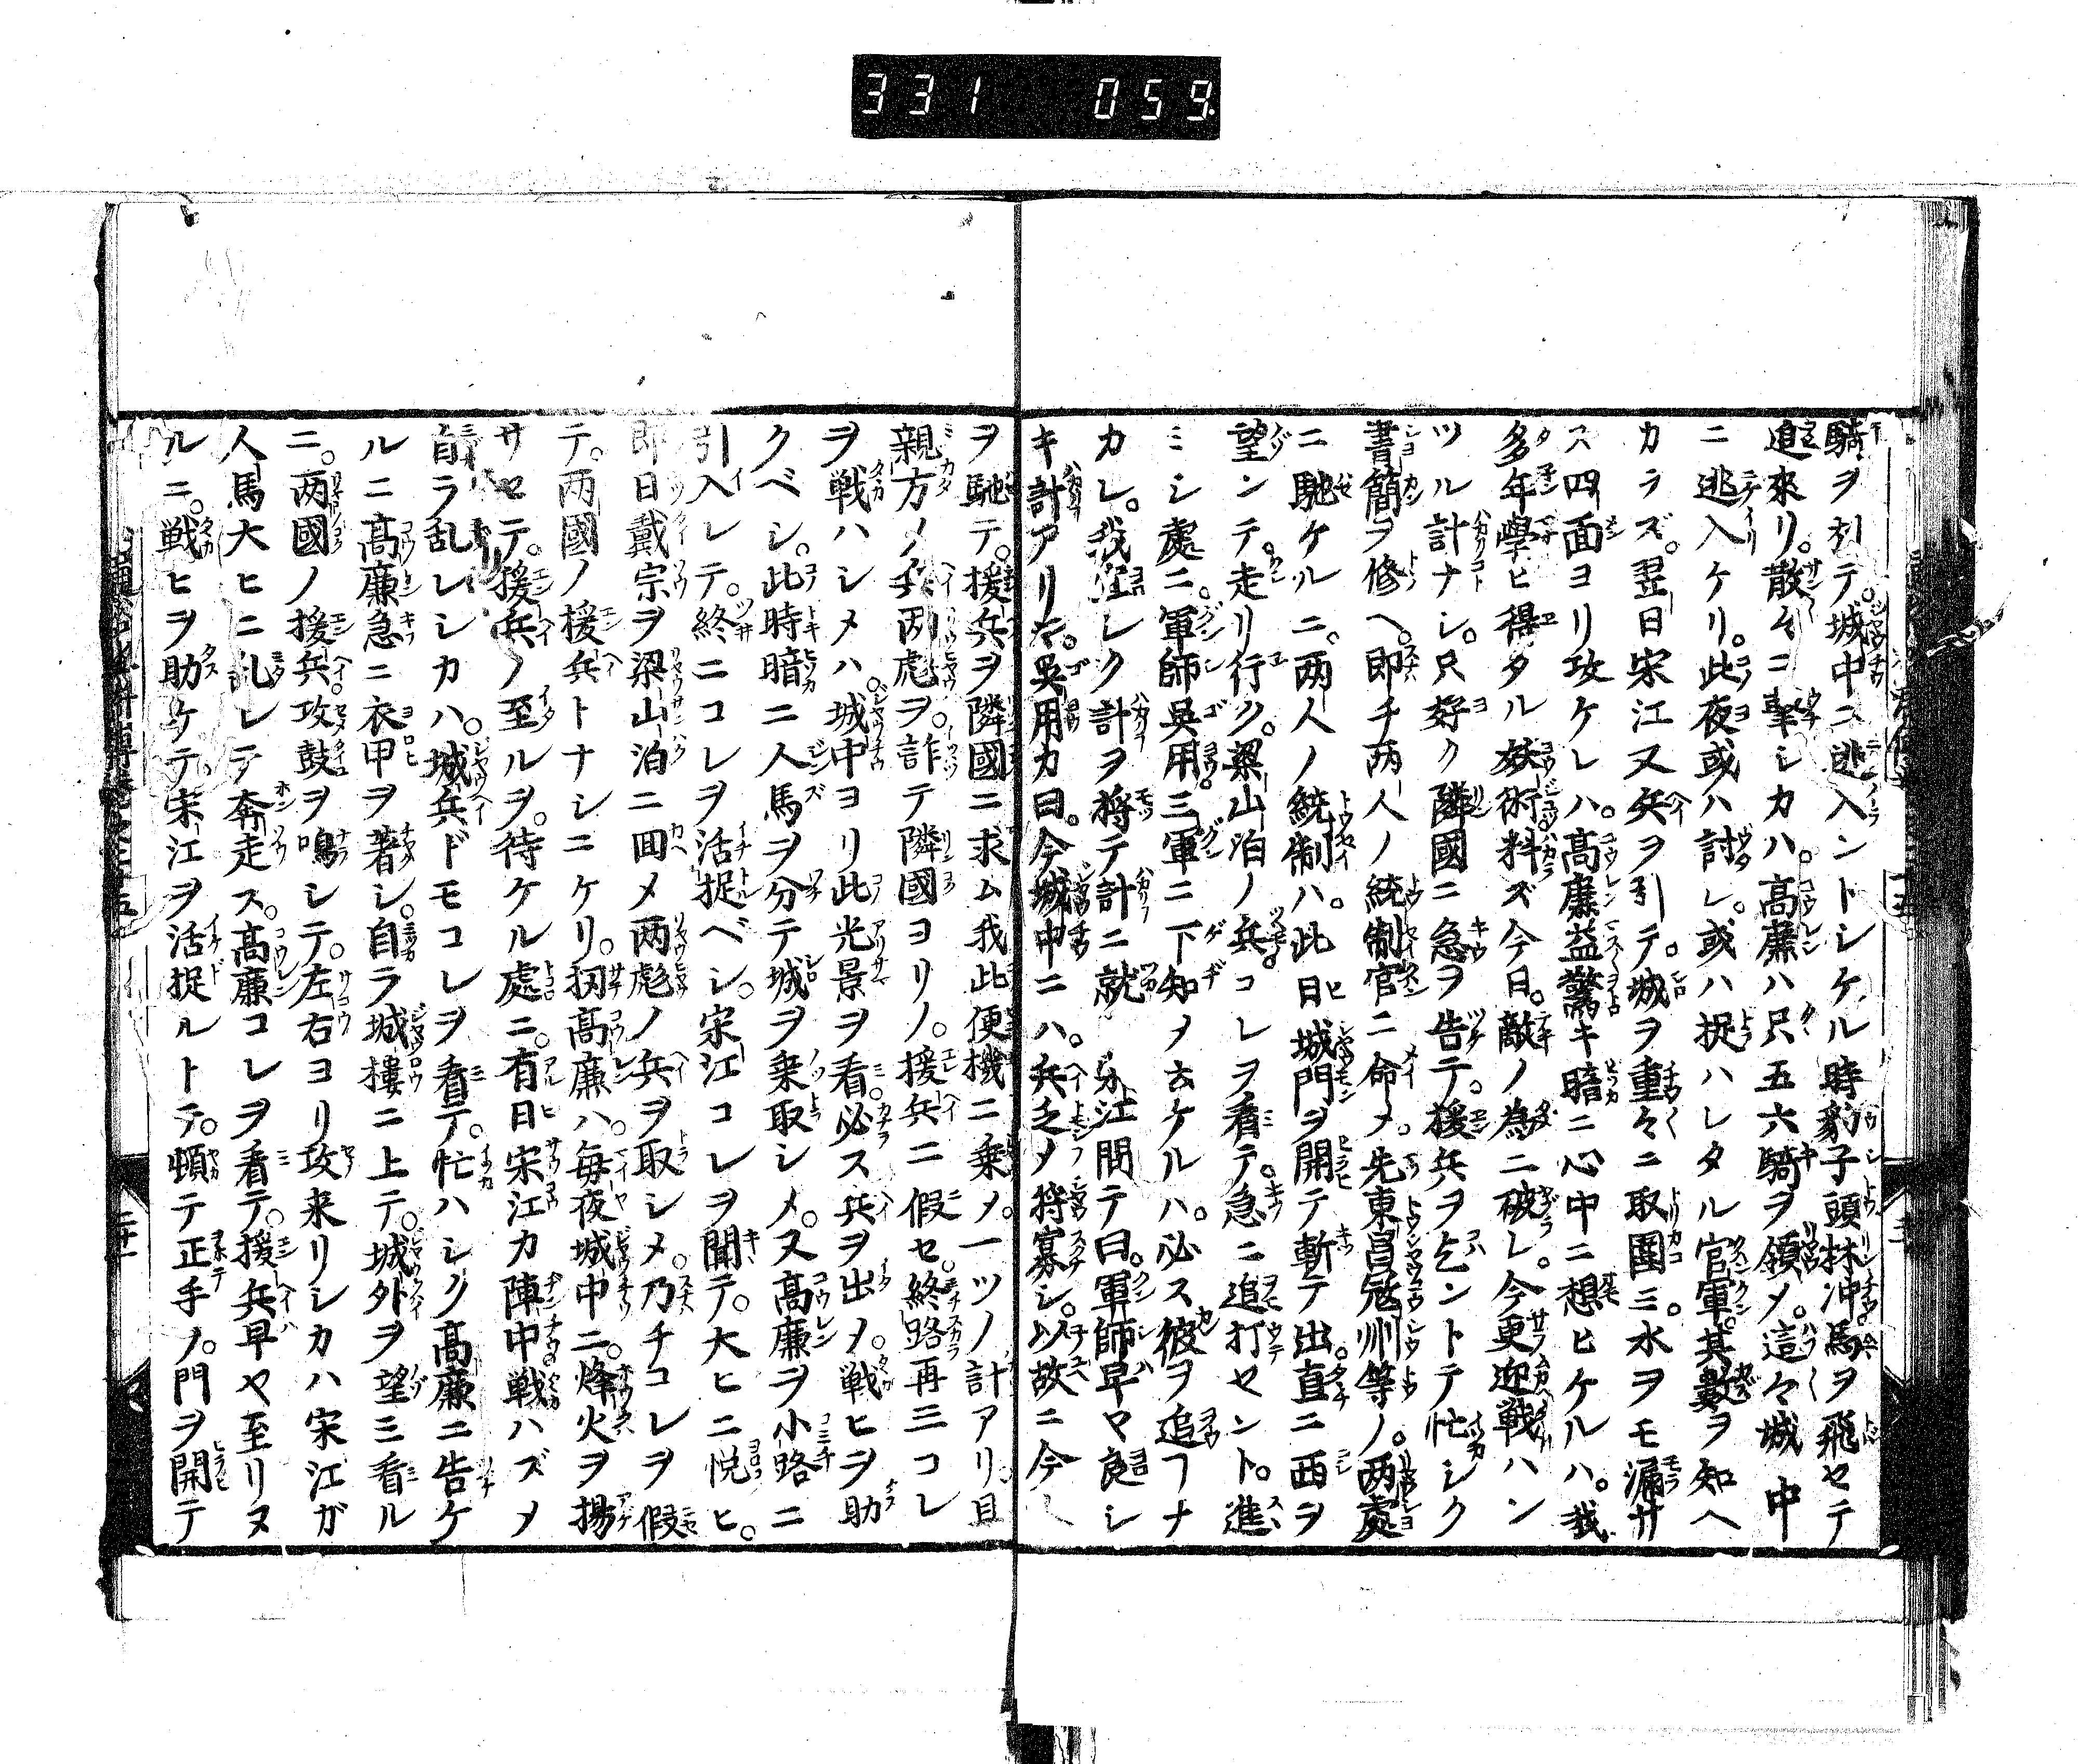 331 059
騎ヲ引テ城中ニ逃入ントシケル時豹子頭林冲馬ヲ飛セテ
追來リ。散々ニ撃シカハ。高廉ハ只五六騎ヲ領メ。這々城中
ニ逃入ケリ。此夜或ハ討レ。或ハ捉ハレタル官軍。其數ヲ知ヘ
カラズ。翌日宋江又兵ヲ引テ。城ヲ重々ニ取圍ミ。水ヲモ漏サ
ス四面ヨリ攻ケレハ。高廉益驚キ暗ニ心中ニ想ヒケルハ。我
多年學ヒ得タル妖術。料ズ今日。敵ノ為ニ破レ。今更迎戰ハン
ツル計ナシ。只好ク隣國ニ急ヲ告テ。援兵ヲ乞ントテ忙シク
書簡ヲ修ヘ。即チ両人ノ統制官ニ命メ。先東昌寇州等ノ。両處
ニ馳ケルニ。両人ノ統制ハ。此日城門ヲ開テ斬テ出。直ニ西ヲ
望ンテ。走リ行ク。梁山泊ノ兵コレヲ看テ。急ニ追打セント。進
ミシ處ニ。軍師吳用。三軍ニ下知メ云ケルハ。必ス彼ヲ追フナ
カレ。我宜シク計ヲ將テ計ニ就ン宋江問テ曰。軍師早マ良シ
キ計アリヤ。吳用カ曰。今城中ニハ。兵乏メ將寡シ。以故ニ今
ヲ馳テ。援兵ヲ隣國ニ求ム我此便機ニ乗メ。一ツノ計アリ且
親方ノ兵両彪ヲ。詐テ隣國ヨリノ。援兵ニ假セ。終路再三コレ
ヲ戰ハシメハ。城中ヨリ此光景ヲ看。必ス兵ヲ出メ。戰ヒヲ助
クベシ。此時暗ニ人馬ヲ分テ城ヲ乗取シメ。又高廉ヲ小路ニ
引入レテ。終ニコレヲ活捉ベシ。宋江コレヲ聞テ。大ヒニ悦ヒ。
即日戴宗ヲ梁山泊ニ回メ両彪ノ兵ヲ取シメ。乃チコレヲ假
テ。両國ノ援兵トナシニケリ。扨高廉ハ。毎夜城中ニ。烽火ヲ揚
サセテ。援兵ノ至ルヲ。待ケル處ニ。有日宋江カ陣中戰ハズメ
自ラ乱レシカハ。城兵ドモコレヲ看テ。忙ハシク高廉ニ告ケ
ルニ高廉急ニ衣甲ヲ著シ。自ラ城樓ニ上テ。城外ヲ望ミ看ル
ニ。両國ノ援兵。攻鼓ヲ鳴シテ。左右ヨリ攻来リシカハ宋江ガ
人馬大ヒニ乱レテ奔走ス。高廉コレヲ看テ。援兵早ヤ至リヌ
ルニ。戰ヒヲ助ケテ宋江ヲ活捉ルトテ。頓テ正手ノ。門ヲ開テ